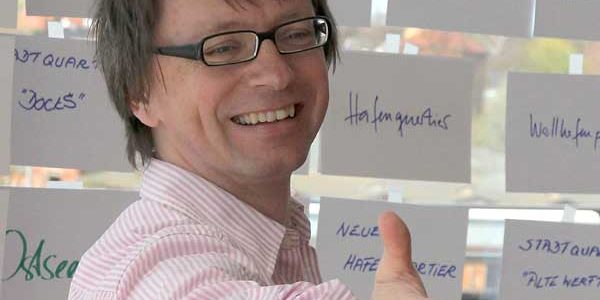 STADTQUART
"DOCKS"
Hafenquartier
Wollhafen
Ostsee
NEUES
HAFENQUARTIER
STADTQUA
"ALTE WERFT